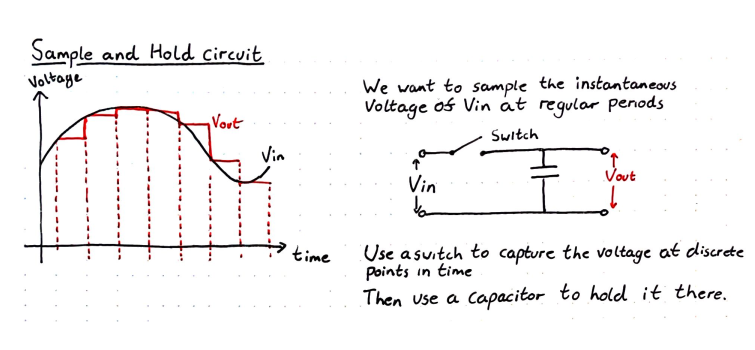 Sample and Hold circuit
Voltage
Vout
Vin
time
We want to sample the instantaneous
Voltage of Vin at regular periods
Switch
Vin
Vout
Use a switch to capture the voltage at discrete
points in time
Then use a capacitor to hold it there.